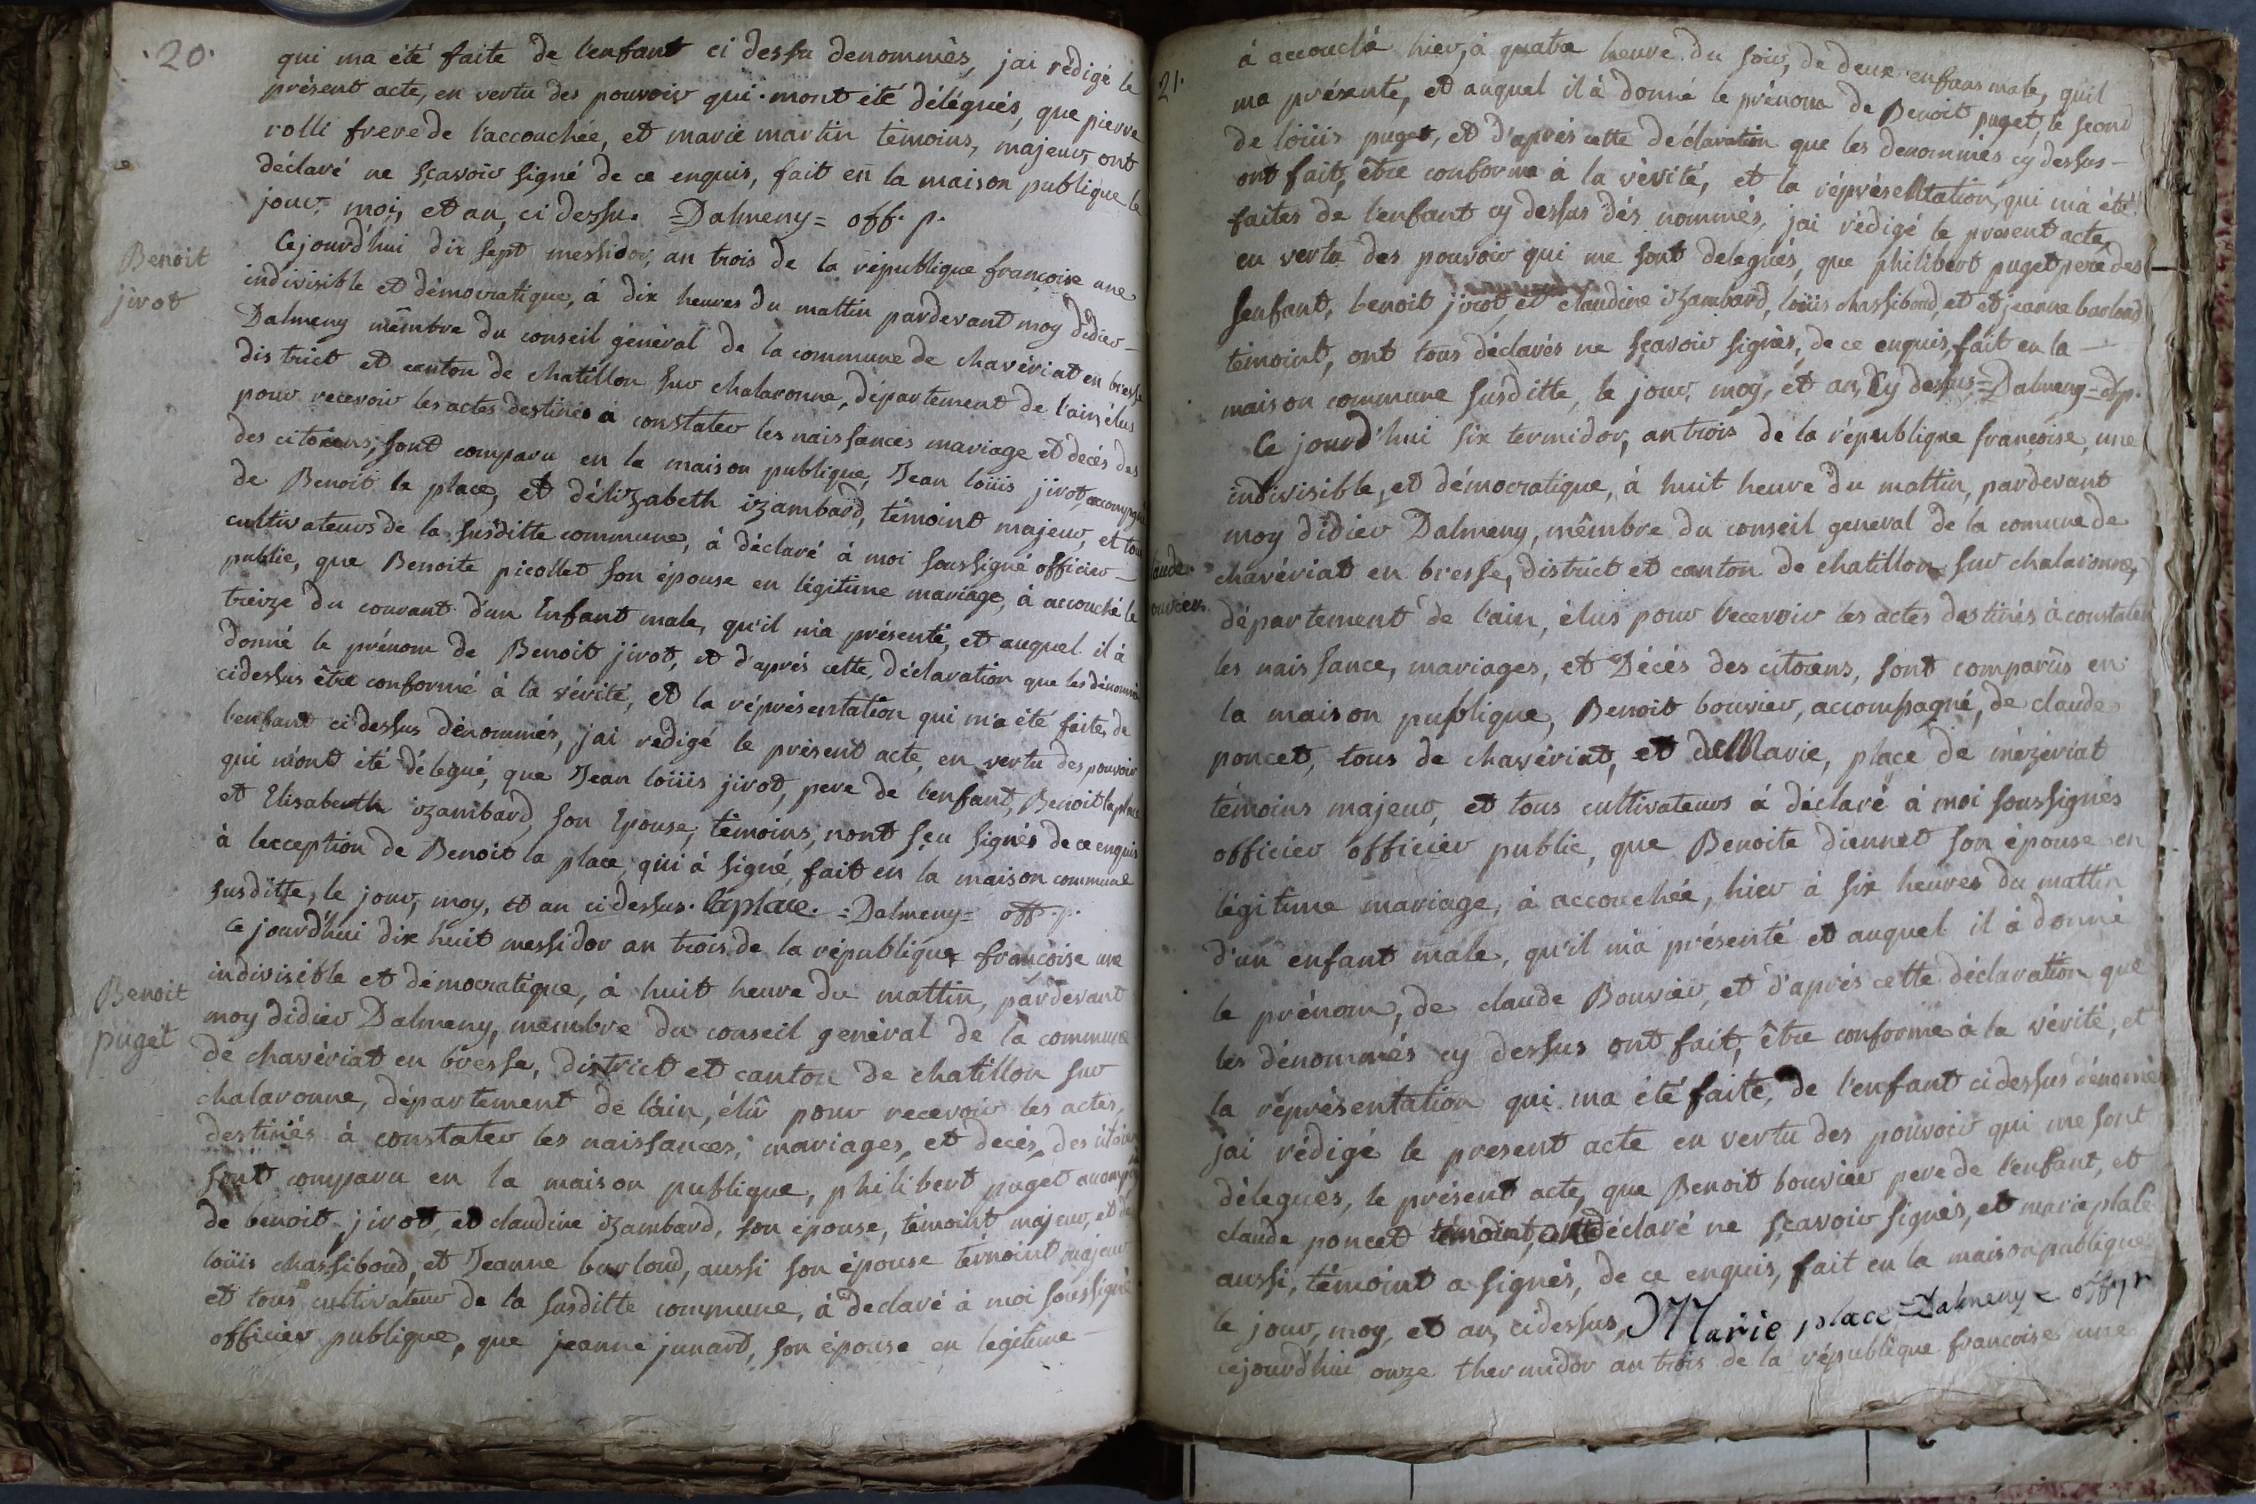 ·20·
qui ma été faite de l'enfant ci dessu denommés, jai rédigé le
présent acte, en vertu des pouvoir qui mont été délégués, que pierre
rolli frere de l'accouchée, et marie martin témoins, majeur, ont
déclaré ne sçavoir signé de ce enquis, fait en la maison publique le
jour, moi, et an, ci dessu. =Dalmeny= off. p.
Benoit
jirot
Cejourd'hui dix sept messidor, an trois de la république françoise une
indivisible et démocratique, à dix heures du mattin pardevant moy didier
Dalmeny mêmbre du conseil général de la commune de chavériat en bresse
district et canton de chatillon sur chalaronne, département de l'ain, élus
pour recevoir les actes destinés à constater les naissances mariage et décés des
des citoiens, sont comparu en la maison publique, Jean loüis jirot, accompagné
de Benoit la place, et délizabeth izambard, témoint majeur, et tous
cultivateurs de la susditte commune, à déclaré à moi soussigné officier
public, que Benoite picollet son épouse en légitime mariage, à accouché le
treize du courant d'un Enfant male, qu'il m'a présenté, et auquel il à
donné le prénom de Benoit jirot, et d'aprés cette déclaration que les dénommés
cidessus être conformé à la vérité, et la réprésentation qui m'a été faite, de
l'enfant ci dessus dénommés, jai redigé le présent acte, en vertu des pouvoir
qui m'ont été délegué, que Jean loüis jirot, pere de l'enfant, Benoit la place
et Elisabeth izambard, son Epouse, témoins, n'ont sçu signés de ce enquis
à l'ecception de Benoit la place, qui à signé, fait en la maison commune
susditte, le jour, moy, et an ci dessus. laplace. =Dalmeny= off. p.
Benoit
puget
Ce jourd'hui dix huit messidor an trois de la république françoise une
indivisible et démocratique, à huit heure du mattin, pardevant
moy didier Dalmeny, membre du conseil genéral de la commune
de chavériat en bresse, district et canton de chatillon sur
chalaronne, département de l'ain, élû pour recevoir les actes,
destinés à constater les naissances, mariages, et decés, des citoiens
sont comparu en la maison publique, philibert puget accompagné
de benoit jirot, et claudine izambard, son épouse, témoint majeur, et de
loüis chassiboud, et Jeanne barloud, aussi son épouse témoint majeur
et tous cultivateur de la susditte commune, à declaré à moi soussigné
officier publique, que jeanne junard, son épouse en legitime
21.
à accouché hier, à quatre heure du soir, de deux enfans male, quil
ma présente, et auquel il à donné le prénom de Benoit puget, le second
de loüis puget, et d'aprés cette déclaration que les denommés cy dessus
ont fait, être conforme à la vérité, et la réprésentation, qui m'a été
faites de l'enfant cy dessus dés nommés, jai rédigé le present acte,
en vertu des pouvoir qui me sont delegués, que philibert puget pere des
senfant, benoit jirot, et claudine izambard, loüis chassiboud, et et jeanne barloud
témoint, ont tous déclarés ne sçavoir signés, de ce enquis, fait en la
maison commune susditte, le jour, moy, et an, Cy dessus =Dalmeny=
Ce jourd'hui six termidor, an trois de la république françoise, une
indivisible, et démocratique, à huit heure du mattin, pardevant
moy didier Dalmeny, mêmbre du conseil general de la comune de
chavériat en bresse, district et canton de chatillon sur chalaronne,
département de l'ain, élus pour recevoir les actes destinés à constater
les naissance, mariages, et Décés des citoiens, sont comparûs en
la maison publique, Benoit bouvier, accompagné, de claude
poncet, tous de chavériat, et de Marie, place de mézériat
témoins majeur, et tous cultivateurs à déclaré à moi soussignés
officier officier public, que Benoite diennet son épouse en
légitime mariage, à accouchée, hier à six heures du mattin
d'un enfant male, qu'il m'a présenté et auquel il à donné
le prénom, de claude Bouvier, et d'aprés cette déclaration que
les dénommés cy dessus ont fait, être conforme à la vérité, et
la réprésentation qui ma été faite, de l'enfant ci dessus dénomés
jai rédigé le present acte en vertu des pouvoir qui me sont
délegués, le présent acte, que Benoit bouvier pere de l'enfant, et
claude poncet témoint, ont déclaré ne sçavoir signés, et marie place
aussi, témoint a signés, de ce enquis, fait en la maison publique
le jour, moy, et an, cidessus, Marie place =Dalmeny=
cejourd'hui onze thermidor an trois de la république françoise une